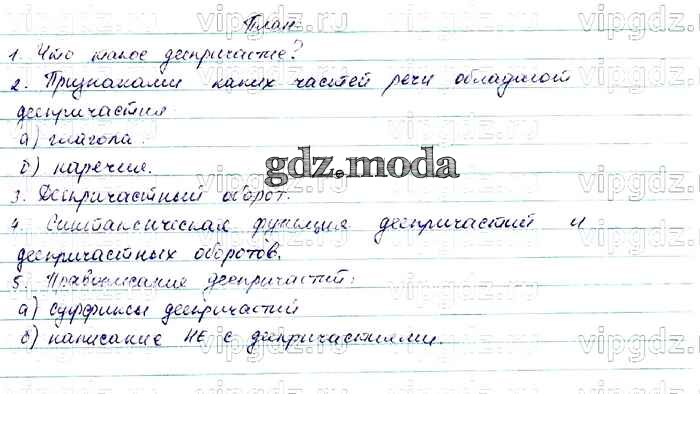 План.
1. Что такое деепричастие?
2. Признаками каких частей речи обладают
деепричастия
а) глагола.
б) наречия.
gdz.moda
3. Деепричастный оборот.
4. Синтаксическая функция деепричастий и
деепричастных оборотов.
5. Правописание деепричастий:
а) суффиксы деепричастий
б) написание НЕ с деепричастиями.
vipgdz.ru